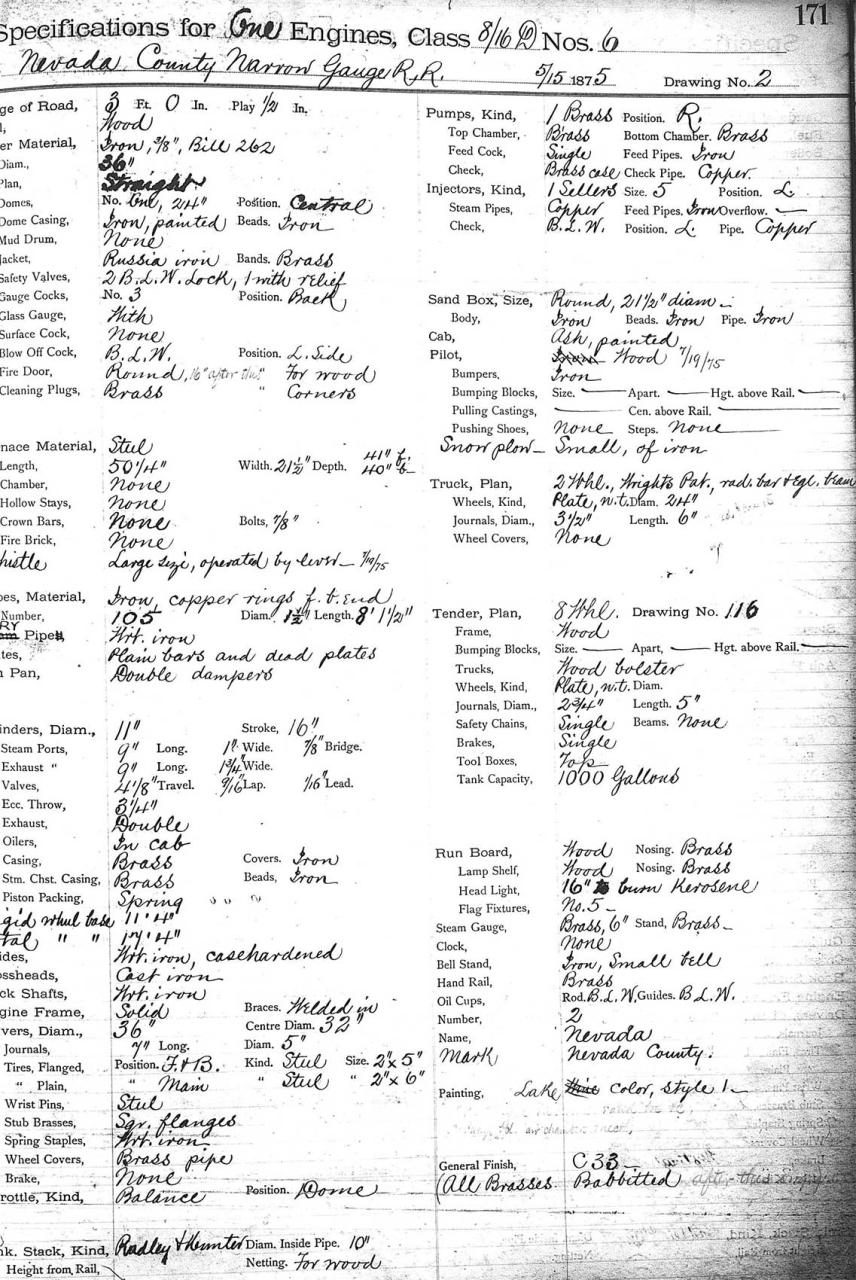 171
Specifications for One Engines, Class 8/16 D Nos. 6
Nevada County Narrow Gauge R.R. 5/15 1875 Drawing No. 2
ge of Road, 3 Ft. 0 In. Play 1/2 In.
l, Wood
er Material, Iron, 3/8", Bill 262
Diam., 36"
Plan, Straight
Domes, No. One, 24" Position. Central
Dome Casing, Iron, painted Beads. Iron
Mud Drum, None
Jacket, Russia iron Bands. Brass
Safety Valves, 2 B.L.W. Lock, 1 with relief
Gauge Cocks, No. 3 Position. Back
Glass Gauge, With
Surface Cock, None
Blow Off Cock, B.L.W. Position. L. Side
Fire Door, Round, 16" after this " For wood
Cleaning Plugs, Brass " Corners
nace Material, Steel
Length, 50 1/4" Width. 21 1/2" Depth. 41" f. 40" b.
Chamber, None
Hollow Stays, None
Crown Bars, None Bolts, 7/8"
Fire Brick, None
histle Large size, operated by lever 7/19/75
bes, Material, Iron, copper rings f.b. End
Number, 105 Diam. 1 1/2" Length. 8' 1 1/2"
RY Pipe Wrt. iron
tes, Plain bars and dead plates
h Pan, Double dampers
inders, Diam., 11" Stroke, 16"
Steam Ports, 9" Long. 1" Wide. 7/8" Bridge.
Exhaust " 9" Long. 1 3/4" Wide.
Valves, 4 1/8" Travel. 9/16" Lap. 1/16" Lead.
Ecc. Throw, 3 1/4"
Exhaust, Double
Oilers, In cab
Casing, Brass Covers. Iron
Stm. Chst. Casing, Brass Beads, Iron
Piston Packing, Spring " " "
gid wheel base 11' 4"
tal " " 17' 4"
ides, Wrt. iron, casehardened
ossheads, Cast iron
ck Shafts, Wrt. iron
gine Frame, Solid Braces. Welded in
vers, Diam., 36" Centre Diam. 32"
Journals, 7" Long. Diam. 5"
Tires, Flanged, Position. F. & B. Kind. Steel Size. 2" x 5"
" Plain, " Main " Steel " 2" x 6"
Wrist Pins, Steel
Stub Brasses, Sqr. flanges
Spring Staples, Wrt. iron
Wheel Covers, Brass pipe
Brake, None
rottle, Kind, Balance Position. Dome
nk. Stack, Kind, Radley & Hunter Diam. Inside Pipe. 10"
Height from Rail, Netting. For wood
Pumps, Kind, 1 Brass Position. R.
Top Chamber, Brass Bottom Chamber. Brass
Feed Cock, Single Feed Pipes. Iron
Check, Brass case Check Pipe. Copper.
Injectors, Kind, 1 Sellers Size. 5 Position. L.
Steam Pipes, Copper Feed Pipes. Iron Overflow. —
Check, B.L.W. Position. L. Pipe. Copper
Sand Box, Size, Round, 21 1/2" diam.
Body, Iron Beads. Iron Pipe. Iron
Cab, Ash, painted
Pilot, Iron Wood 7/19/75
Bumpers. Iron
Bumping Blocks, Size. — Apart. — Hgt. above Rail. —
Pulling Castings, — Cen. above Rail. —
Pushing Shoes, None Steps. None
Snow plow — Small, of iron
Truck, Plan, 2 Whl., Wrights Pat., rad. bar & eql. beam
Wheels, Kind, Plate, w.t. Diam. 24"
Journals, Diam., 3 1/2" Length. 6"
Wheel Covers, None
Tender, Plan, 8 Whl. Drawing No. 116
Frame, Wood
Bumping Blocks, Size. — Apart, — Hgt. above Rail. —
Trucks, Wood bolster
Wheels, Kind, Plate, w.t. Diam.
Journals, Diam., 2 3/4" Length. 5"
Safety Chains, Single Beams. None
Brakes, Single
Tool Boxes, Top
Tank Capacity, 1000 Gallons
Run Board, Wood Nosing. Brass
Lamp Shelf, Wood Nosing. Brass
Head Light, 16" to burn Kerosene
Flag Fixtures, No. 5
Steam Gauge, Brass, 6" Stand, Brass
Clock, None
Bell Stand, Iron, Small bell
Hand Rail, Brass
Oil Cups, Rod. B.L.W. Guides. B.L.W.
Number, 2
Name, Nevada
Mark Nevada County.
Painting, Lake Wine color, style 1
General Finish, C 33
(All Brasses Babbitted after this